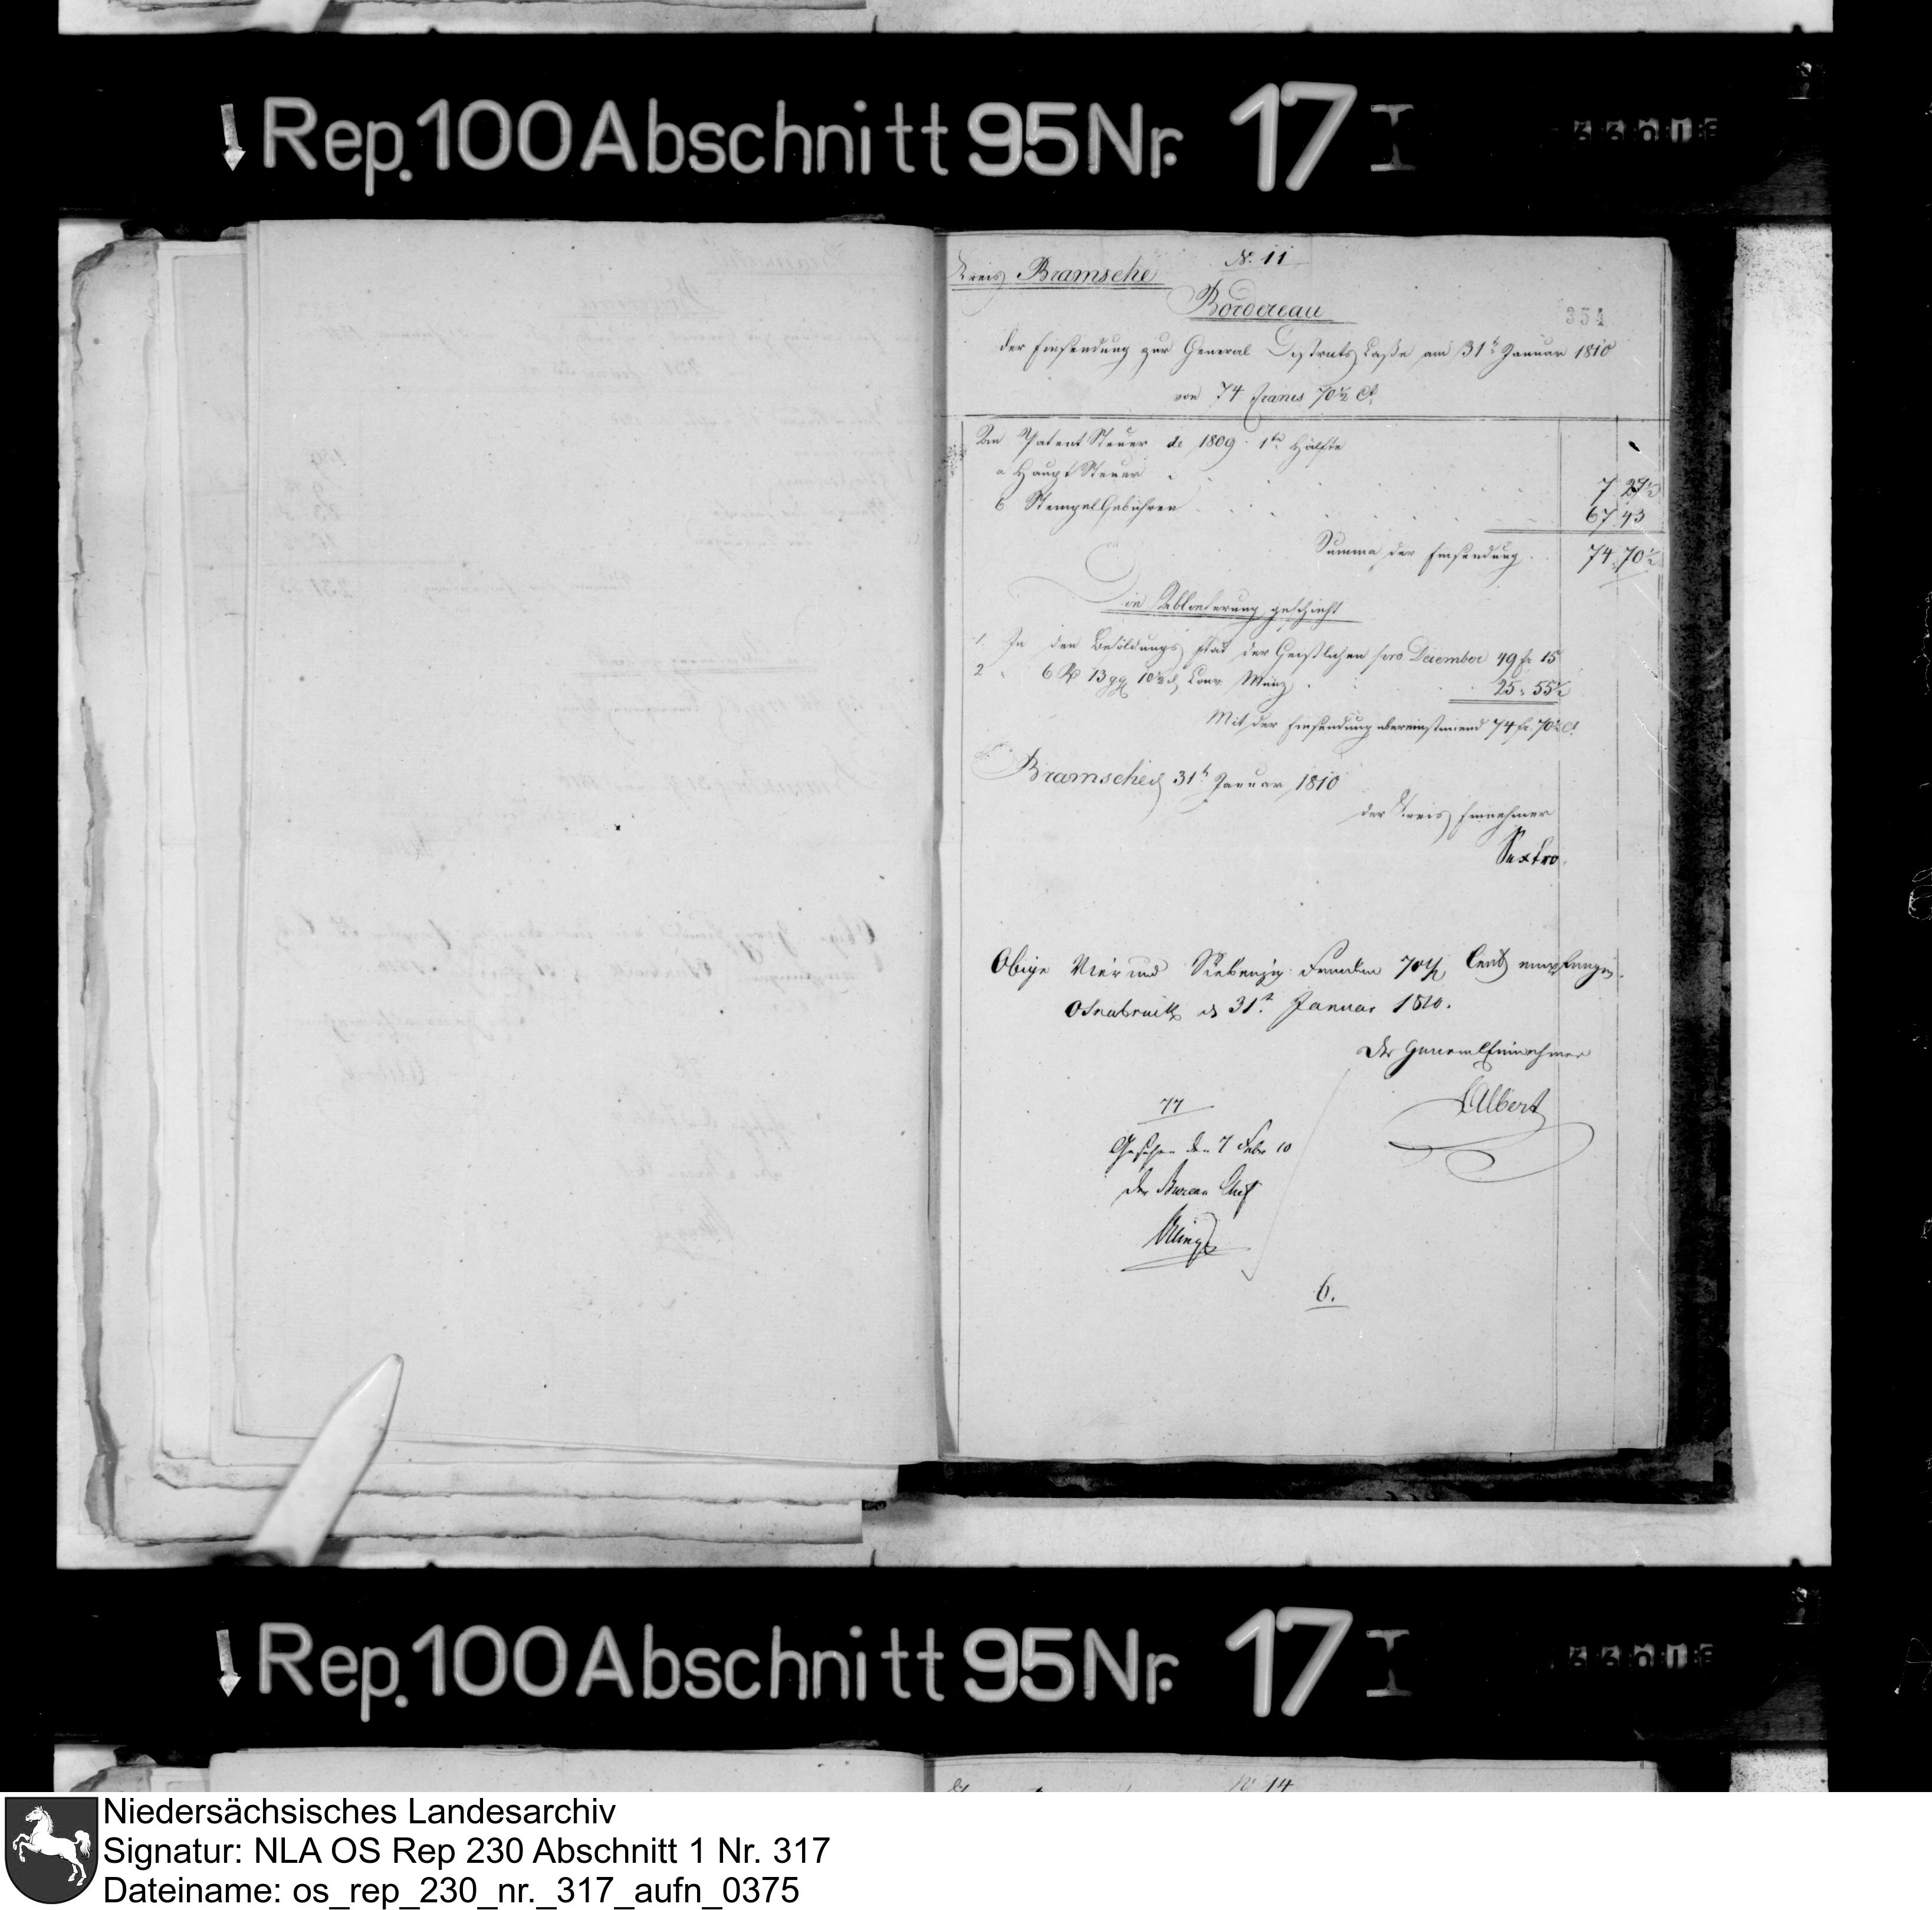 Rep. 100 Abschnitt 95 Nr. 17 I
N. 11
Kreis Bramsche
Bordereau
354
der Einsendung zur General Districts Casse am 31t Januar 1810
von 74 Francs 70½ Ct.
An Patent Steuer de 1809. 1te Hälfte
a Haupt Steuer . 7 27½
b Stempel Gebühren . 67 43
Summa der Einsendung . 74 70½
Die Ablieferung geschieht
1. In den Besoldungs Etat der Geistlichen pro December 49 fr 15
2 " 6 Rt 13 gg 10½ d Conv. Münz . 25 " 55½
Mit der Einsendung übereinstimend 74 fr. 70½ Ct
Bramsche d 31t Januar 1810
der Kreis Einnehmer
Sextro
Obige Vier und Siebenzig Franken 70½ Cent empfangen.
Osnabruck d 31t Januar 1810.
Der General Einnehmer
Albert
77
Gesehen den 7 Febr 10
Der Bureau Chef
6.
Rep. 100 Abschnitt 95 Nr. 17 I
N. 14
Niedersächsisches Landesarchiv
Signatur: NLA OS Rep 230 Abschnitt 1 Nr. 317
Dateiname: os_rep_230_nr._317_aufn_0375